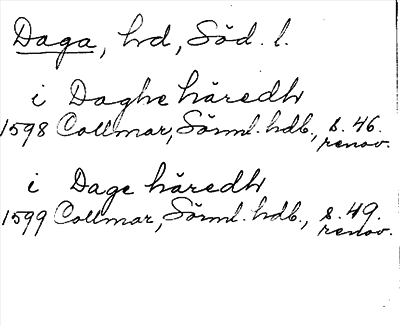 Daga, hd, Söd. l.
i Daghe häredh
1598 Collmar, Sörml. hdb., s. 46.
renov.
i Dage häredh
1599 Collmar, Sörml. hdb., s. 49.
renov.